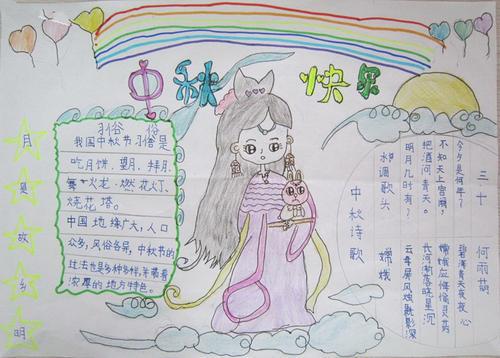 中秋快乐
月是故乡明
习俗 俗
我国中秋节习俗是
吃月饼、望月、拜月、
舞火龙、燃花灯、
烧花塔。
中国地域广大,人口
众多,风俗各异,中秋节的
过法也是多种多样,并带着
浓厚的地方特色。
三十
何雨萌
今夕是何年?
不知天上宫阙,
把酒问青天。
明月几时有?
水调歌头
中秋诗歌
碧海青天夜夜心
嫦娥应悔偷灵药
长河渐落晓星沉
云母屏风烛影深
嫦娥